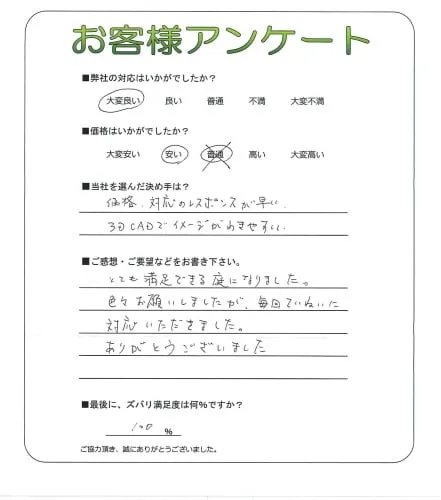 お客様アンケート
■弊社の対応はいかがでしたか?
大変良い 良い 普通 不満 大変不満
■価格はいかがでしたか?
大変安い 安い 普通 高い 大変高い
■当社を選んだ決め手は?
価格、対応のレスポンスが早い、
3D CADでイメージがわきやすい、
■ご感想・ご要望などをお書き下さい。
とても満足できる庭になりました。
色々お願いしましたが、毎回ていねいに
対応いただきました。
ありがとうございました
■最後に、ズバリ満足度は何%ですか?
100 %
ご協力頂き、誠にありがとうございました。